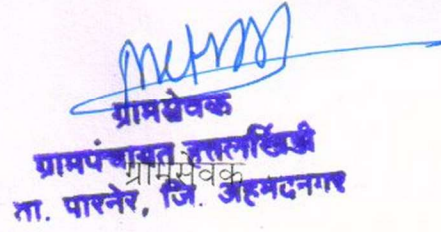 ग्रामसेवक
ग्रामपंचायत हत्तलखिंडी
ग्रामसेवक
ता. पारनेर, जि. अहमदनगर